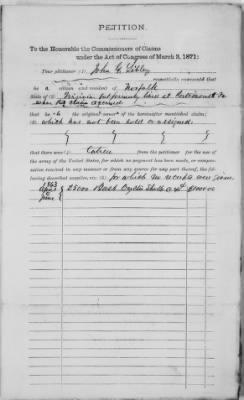 PETITION.
To the Honorable the Commissioners of Claims
under the Act of Congress of March 3, 1871:
Your petitioner (1) John G.
respectfully represented that
he a citizen and resident of Norfolk
State of (2) Virginia but formerly lived at Portsmouth Va
when the claim accrued
that he is the original owner of the hereinafter mentioned claims;
(3) which has not been sold or assigned.
that there were (4) taken from the petitioner for the use of
the army of the United States, for which no payment has been made, or compensation
received in any manner or from any source for any part thereof, the following
described supplies, etc. (5) for which no receipts were given.
1863
25000 Bush Oyster Shells a 4¢ $1000.00
June